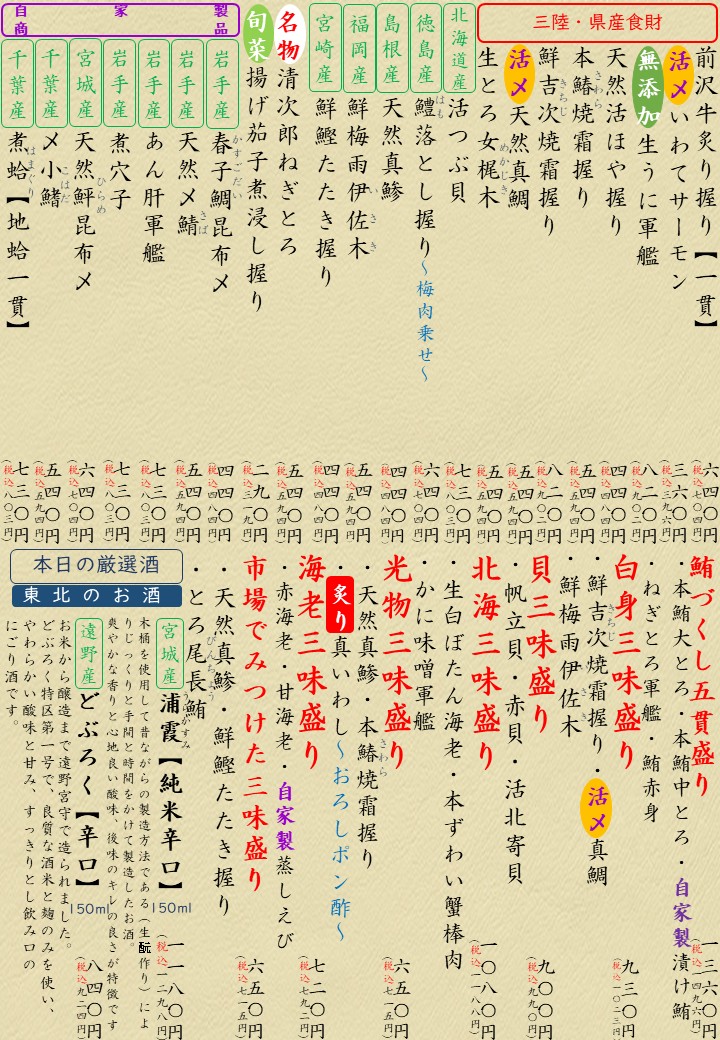 三陸・県産食財
前沢牛炙り握り【一貫】
六四〇円
(税込七〇四円)
活〆いわてサーモン
三六〇円
(税込三九六円)
無添加生うに軍艦
八二〇円
(税込九〇二円)
天然活ほや握り
四四〇円
(税込四八四円)
本鰆焼霜握り
さわら
五四〇円
(税込五九四円)
鮮吉次焼霜握り
きちじ
八二〇円
(税込九〇二円)
活〆天然真鯛
五四〇円
(税込五九四円)
生とろ女梶木
めかじき
五四〇円
(税込五九四円)
北海道産
活つぶ貝
七三〇円
(税込八〇三円)
徳島産
鱧落とし握り〜梅肉乗せ〜
はも
六四〇円
(税込七〇四円)
島根産
天然真鯵
四四〇円
(税込四八四円)
福岡産
鮮梅雨伊佐木
いさき
五四〇円
(税込五九四円)
宮崎産
鮮鰹たたき握り
四四〇円
(税込四八四円)
名物清次郎ねぎとろ
五四〇円
(税込五九四円)
旬菜揚げ茄子煮浸し握り
二九〇円
(税込三一九円)
自家製商品
岩手産
春子鯛昆布〆
かすごだい
四四〇円
(税込四八四円)
岩手産
天然〆鯖
さば
五四〇円
(税込五九四円)
岩手産
あん肝軍艦
七三〇円
(税込八〇三円)
岩手産
煮穴子
七三〇円
(税込八〇三円)
宮城産
天然鮃昆布〆
ひらめ
六四〇円
(税込七〇四円)
千葉産
〆小鰭
こはだ
五四〇円
(税込五九四円)
千葉産
煮蛤【地蛤一貫】
はまぐり
七三〇円
(税込八〇三円)
鮪づくし五貫盛り
・本鮪大とろ・本鮪中とろ・自家製漬け鮪
・ねぎとろ軍艦・鮪赤身
一三六〇円
(税込一四九六円)
白身三味盛り
・鮮吉次焼霜握り・活〆真鯛
きちじ
・鮮梅雨伊佐木
いさき
九三〇円
(税込一〇二三円)
貝三味盛り
・帆立貝・赤貝・活北寄貝
九〇〇円
(税込九九〇円)
北海三味盛り
・生白ぼたん海老・本ずわい蟹棒肉
・かに味噌軍艦
一〇八〇円
(税込一一八八円)
光物三味盛り
・天然真鯵・本鰆焼霜握り
さわら
・炙り真いわし〜おろしポン酢〜
六五〇円
(税込七一五円)
海老三味盛り
・赤海老・甘海老・自家製蒸しえび
七二〇円
(税込七九二円)
市場でみつけた三味盛り
・天然真鯵・鮮鰹たたき握り
・とろ尾長鮪
びんちょう
六五〇円
(税込七一五円)
本日の厳選酒
東北のお酒
宮城産
浦霞【純米辛口】
うらかすみ
150ml
一一八〇円
(税込一二九八円)
木桶を使用して昔ながらの製造方法である(生酛作り)によ
りじっくりと手間と時間をかけて製造したお酒。
爽やかな香りと心地良い酸味、後味のキレの良さが特徴です
遠野産
どぶろく【辛口】
150ml
八四〇円
(税込九二四円)
お米から醸造まで遠野宮守で造られました。
どぶろく特区第一号で、良質な酒米と麹のみを使い、
やわらかい酸味と甘み、すっきりとし飲み口の
にごり酒です。